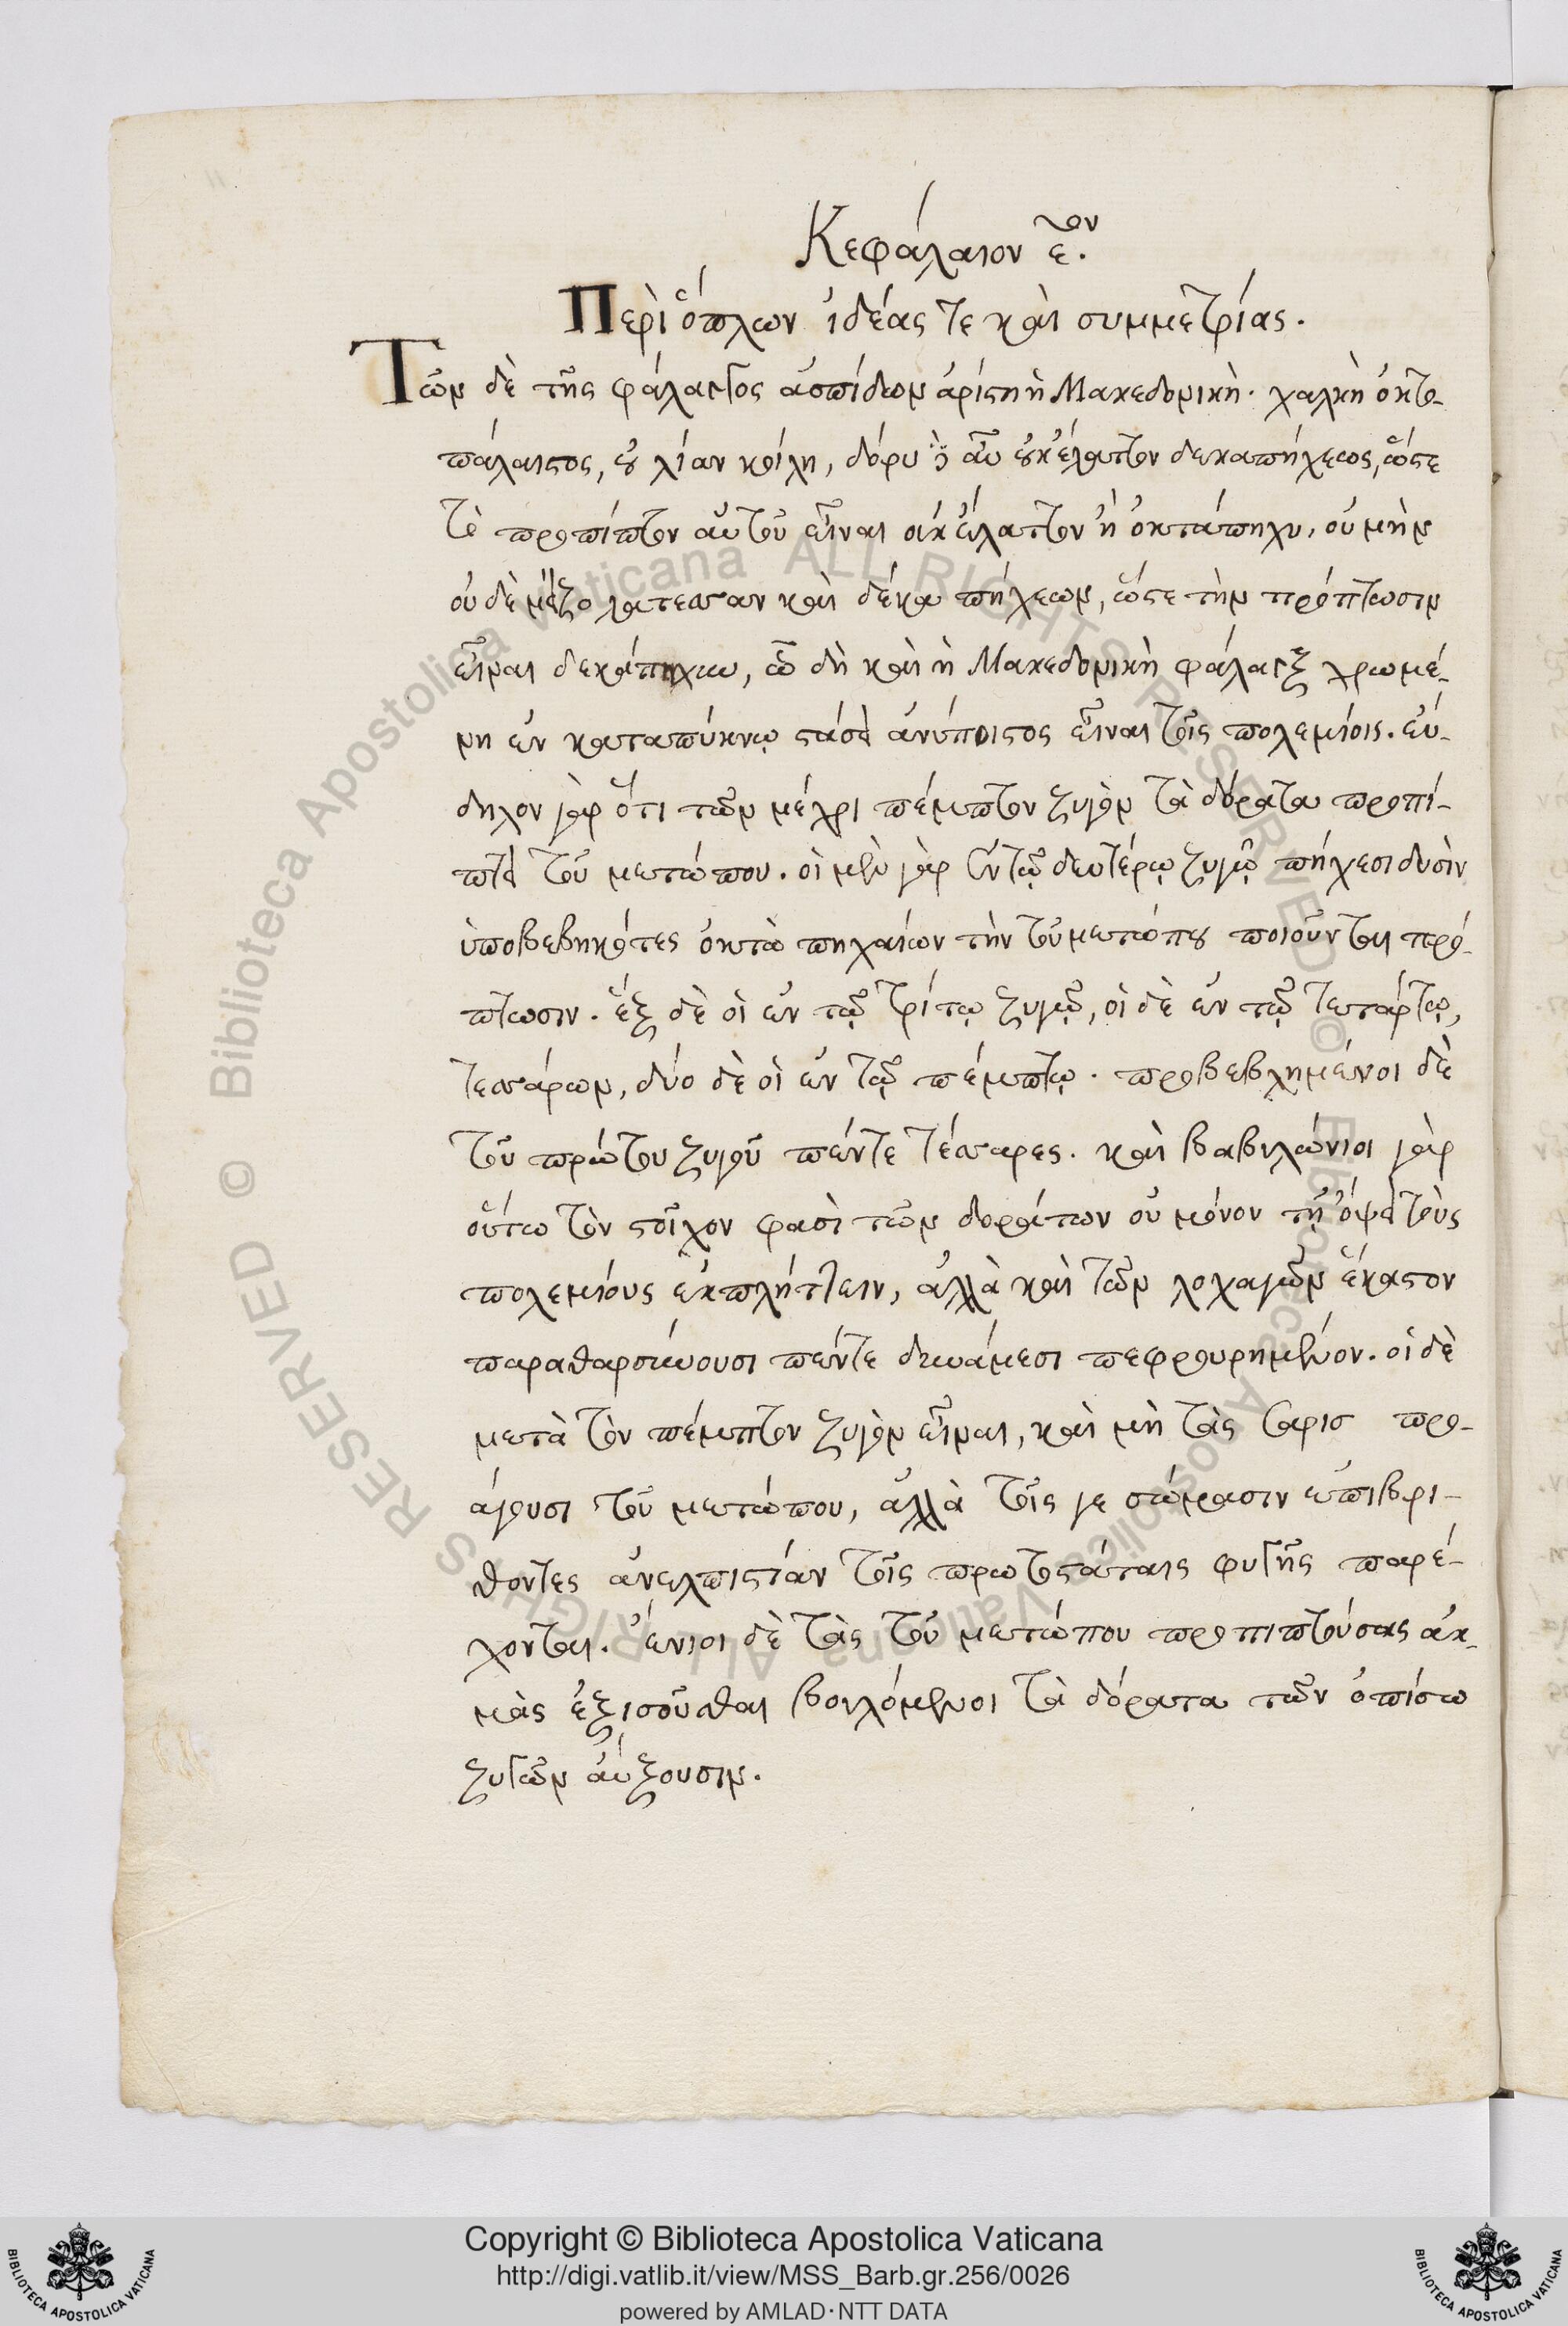 Κεφάλαιον ε^ον.
Περὶ ὅπλων ἰδέας τε καὶ συμμετρίας.
Τῶν δὲ τῆς φάλαγγος ἀσπίδων ἀρίστη ἡ Μακεδονικὴ. χαλκὴ ὀκτο-
πάλαιστος, οὐ λίαν κοίλη, δόρυ δὲ αὖ οὐκ ἔλαττον δεκαπήχεως, ὥστε
τὸ προπίπτον αὐτοῦ εἶναι οὐκ ἔλαττον ἢ ὀκτάπηχυ, οὐ μὴν
οὐδὲ τεσσαν καὶ δέκα πήχεων, ὥστε τὴν πρόπτωσιν
εἶναι δεκάπηχυν, ὧ δὴ καὶ ἡ Μακεδονικὴ φάλαγξ χρωμέ-
νη ἐν καταπύκνῳ στάσει ἀνύποιστος εἶναι τοῖς πολεμίοις. εὔ-
δηλον γὰρ ὅτι τῶν μέχρι πέμπτον ζυγὸν τὰ δόρατα προπί-
πτει τοῦ μετώπου. οἱ μὲν γὰρ ἐν τῷ δευτέρῳ ζυγῷ πήχεσι δυσὶν
ὑποβεβηκότες ὀκτὼ πηχαίων τὴν τοῦ μετώπου ποιοῦνται πρό-
πτωσιν. ἓξ δὲ οἱ ἐν τῷ τρίτῳ ζυγῷ, οἱ δὲ ἐν τῷ τετάρτῳ,
τεσσάρων, δύο δὲ οἱ ἐν τῷ πέμπτῳ. προβεβλημένοι δὲ
τοῦ πρώτου ζυγοῦ πέντε τέσσαρες. καὶ βαβυλώνιοι γὰρ
οὕτω τὸν στοῖχον φασὶ τῶν δοράτων οὐ μόνον τῇ ὄψει τοὺς
πολεμίους ἐκπλήττειν, ἀλλὰ καὶ τῶν λοχαγῶν ἕκαστον
παραθαρσύνουσι πέντε δυνάμεσι πεφρουρημένον. οἱ δὲ
μετὰ τὸν πέμπτον ζυγὸν εἶναι, καὶ μὴ τὰς σαρισ προ-
άγουσι τοῦ μετώπου, ἀλλὰ τοῖς γε σώμασιν ἐπιβρι-
θοντες ἀνελπιστίαν τοῖς πρωτοστάταις φυγῆς παρέ-
χονται. ἔνιοι δὲ τὰς τοῦ μετώπου προπιπτούσας ἀκ-
μὰς ἐξισοῦσθαι βουλόμενοι τὰ δόρατα τῶν ὀπίσω
ζυγῶν αὔξουσιν.
© Biblioteca Apostolica Vaticana ALL RIGHTS RESERVED © Biblioteca Apostolica Vaticana ALL RIGHTS RESERVED
BIBLIOTECA APOSTOLICA VATICANA
Copyright © Biblioteca Apostolica Vaticana
http://digi.vatlib.it/view/MSS_Barb.gr.256/0026
powered by AMLAD·NTT DATA
BIBLIOTECA APOSTOLICA VATICANA